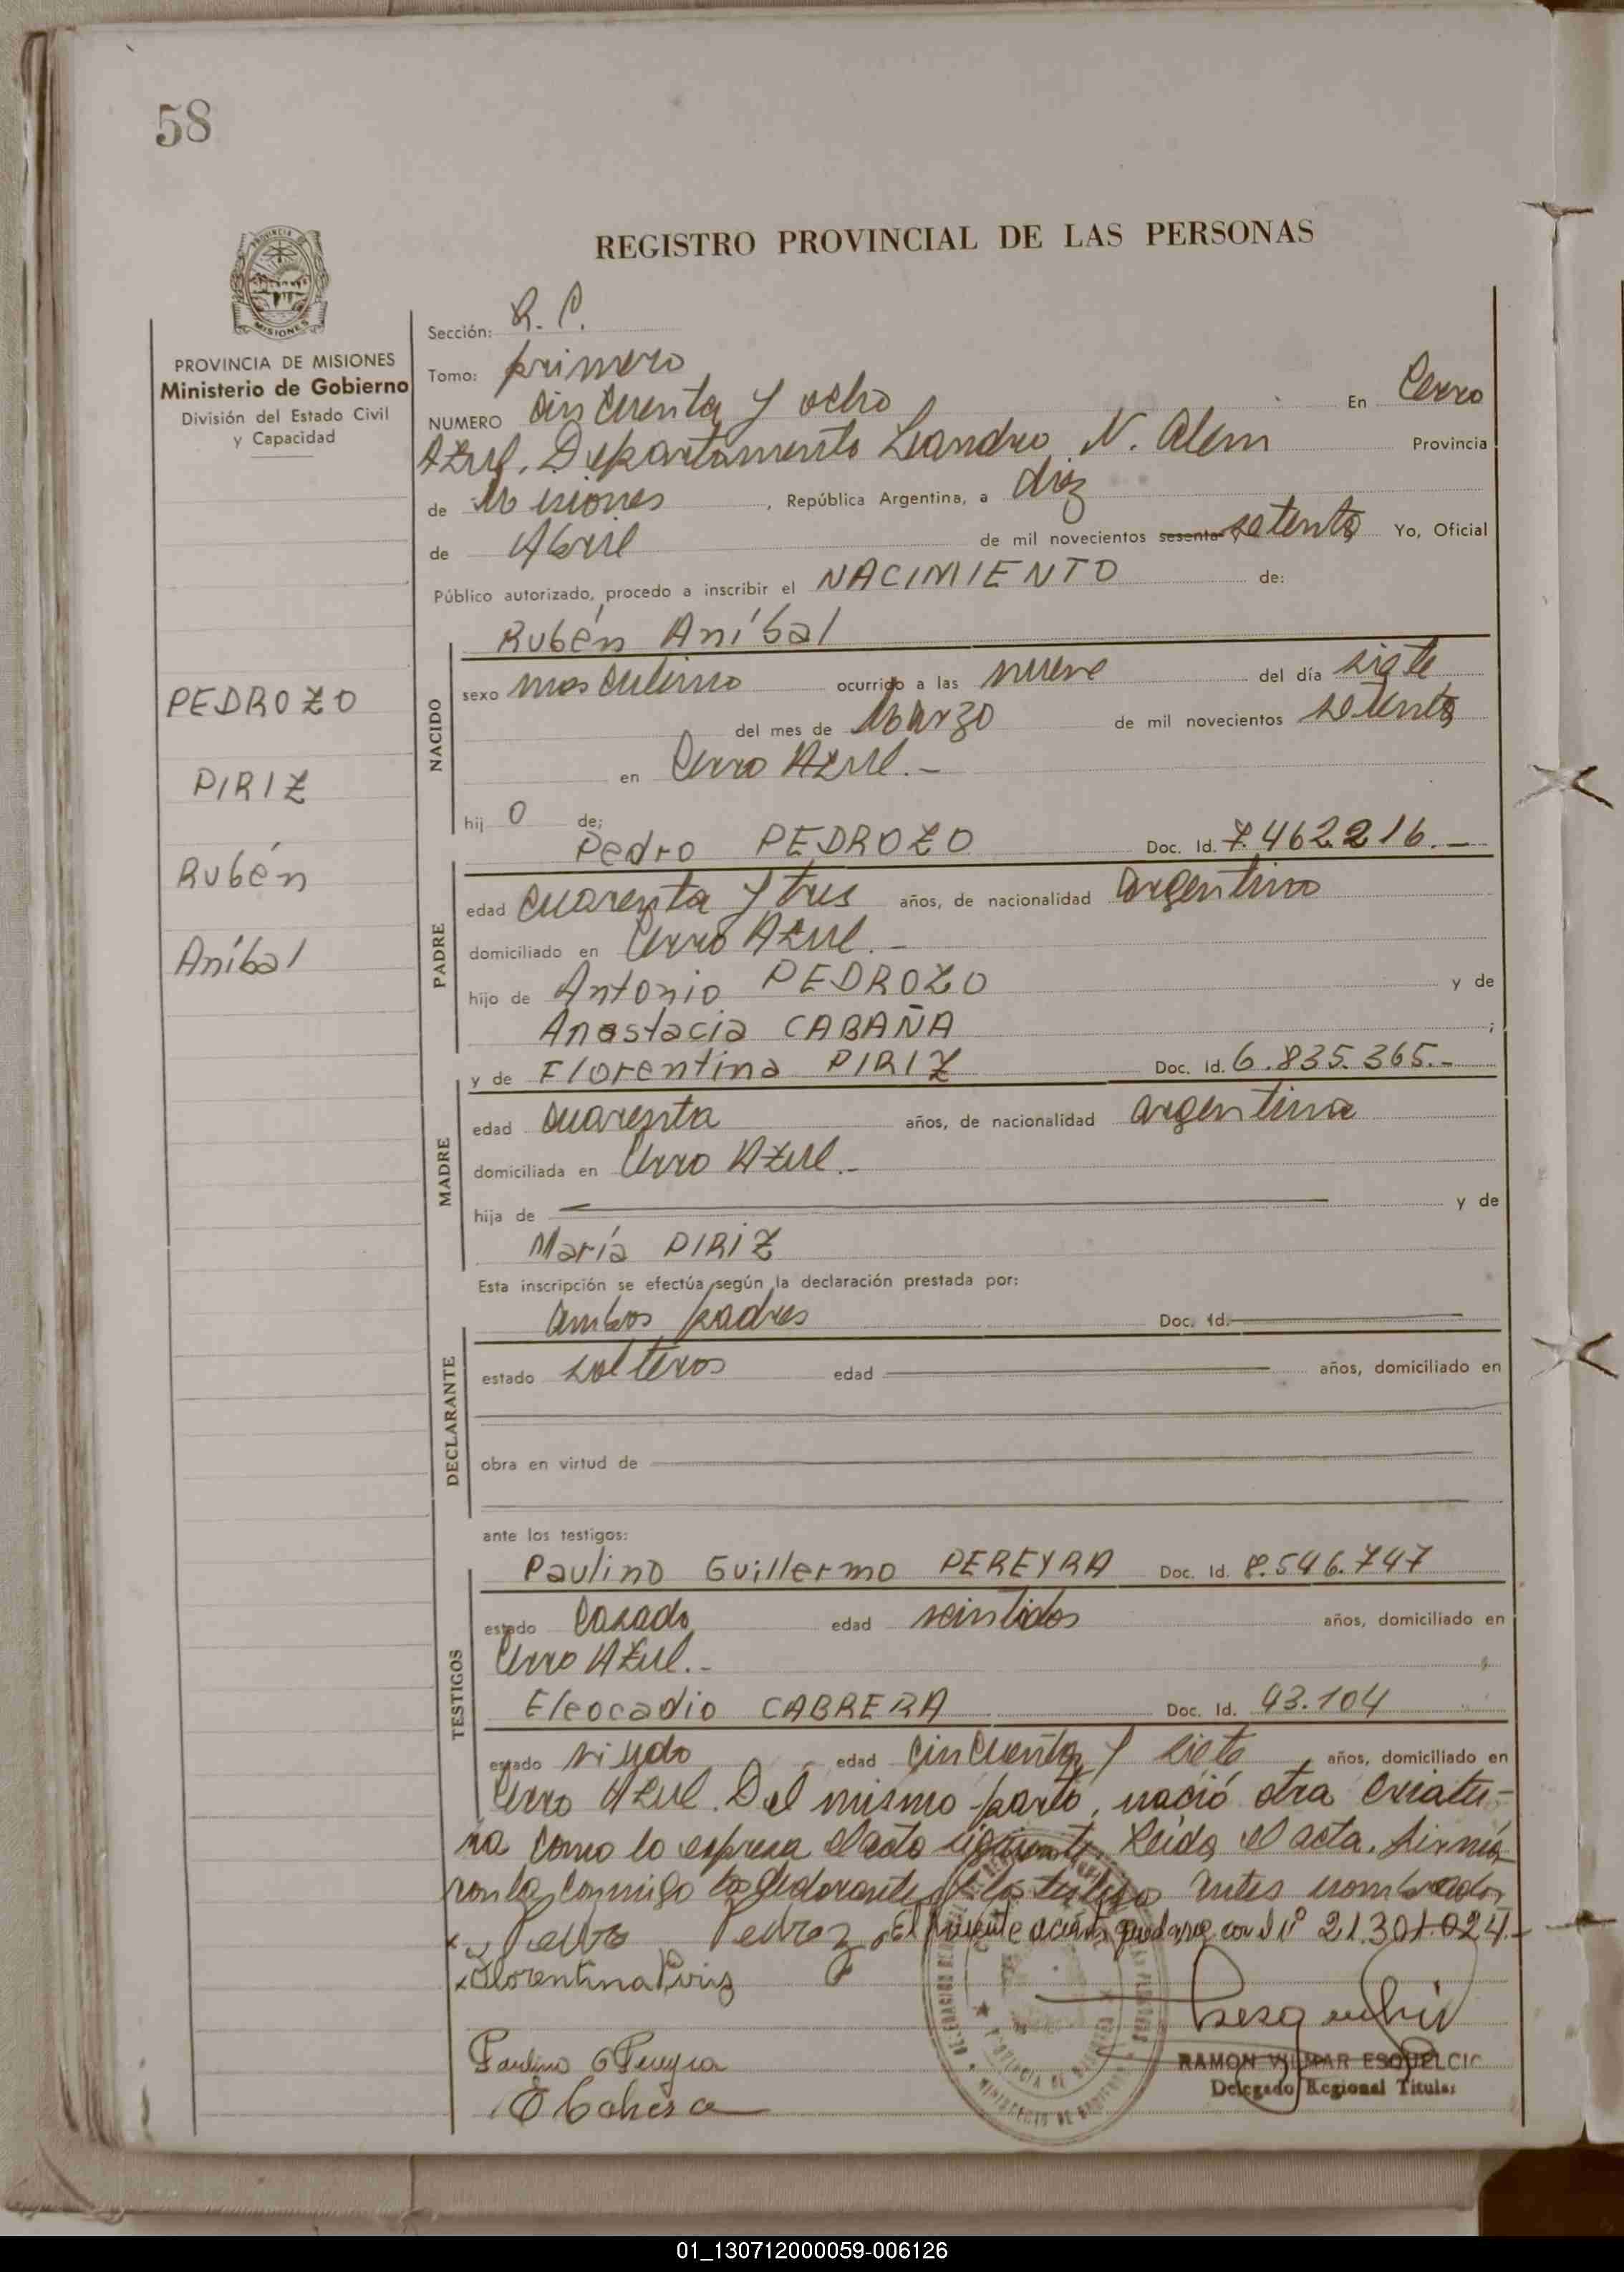 58
REGISTRO PROVINCIAL DE LAS PERSONAS
MISIONES
PROVINCIA DE MISIONES
Ministerio de Gobierno
División del Estado Civil
y Capacidad
Sección: R. C.
Tomo: primero
NUMERO cincuenta y ocho En Cerro
Azul, Departamento Leandro N. Alem Provincia
de Misiones, República Argentina, a diez
de Abril de mil novecientos sesenta setenta Yo, Oficial
Público autorizado, procedo a inscribir el NACIMIENTO de:
Rubén Aníbal
NACIDO
sexo masculino ocurrido a las nueve del día siete
del mes de Marzo de mil novecientos setenta
en Cerro Azul.-
hij o de:
Pedro PEDROZO Doc. Id. 7.462.216.-
PADRE
edad cuarenta y tres años, de nacionalidad argentino
domiciliado en Cerro Azul.-
hijo de Antonio PEDROZO y de
Anastacia CABAÑA ;
y de Florentina PIRIZ Doc. Id. 6.835.365.-
MADRE
edad cuarenta años, de nacionalidad argentina
domiciliada en Cerro Azul.-
hija de y de
María PIRIZ
Esta inscripción se efectúa según la declaración prestada por:
ambos padres Doc. Id.
DECLARANTE
estado solteros edad años, domiciliado en
obra en virtud de
ante los testigos:
Paulino Guillermo PEREYRA Doc. Id. 8.546.747
TESTIGOS
estado casado edad veintidos años, domiciliado en
Cerro Azul.-
Eleocadio CABRERA Doc. Id. 93.104
estado viudo edad cincuenta y siete años, domiciliado en
Cerro Azul. Del mismo parto, nació otra criatu-
ra como lo expresa el acto siguiente Leída el acta, firma
ronla conmigo los declarantes y los testigos antes nombrados
x Pedro Pedrozo El presente con el Nº 21.301.024.-
x Florentina Piriz
Paulino G Pereyra
E Cabrera
RAMON VILMAR ESQUELCIC
Delegado Regional Titular
PEDROZO
PIRIZ
Rubén
Aníbal
01_130712000059-006126